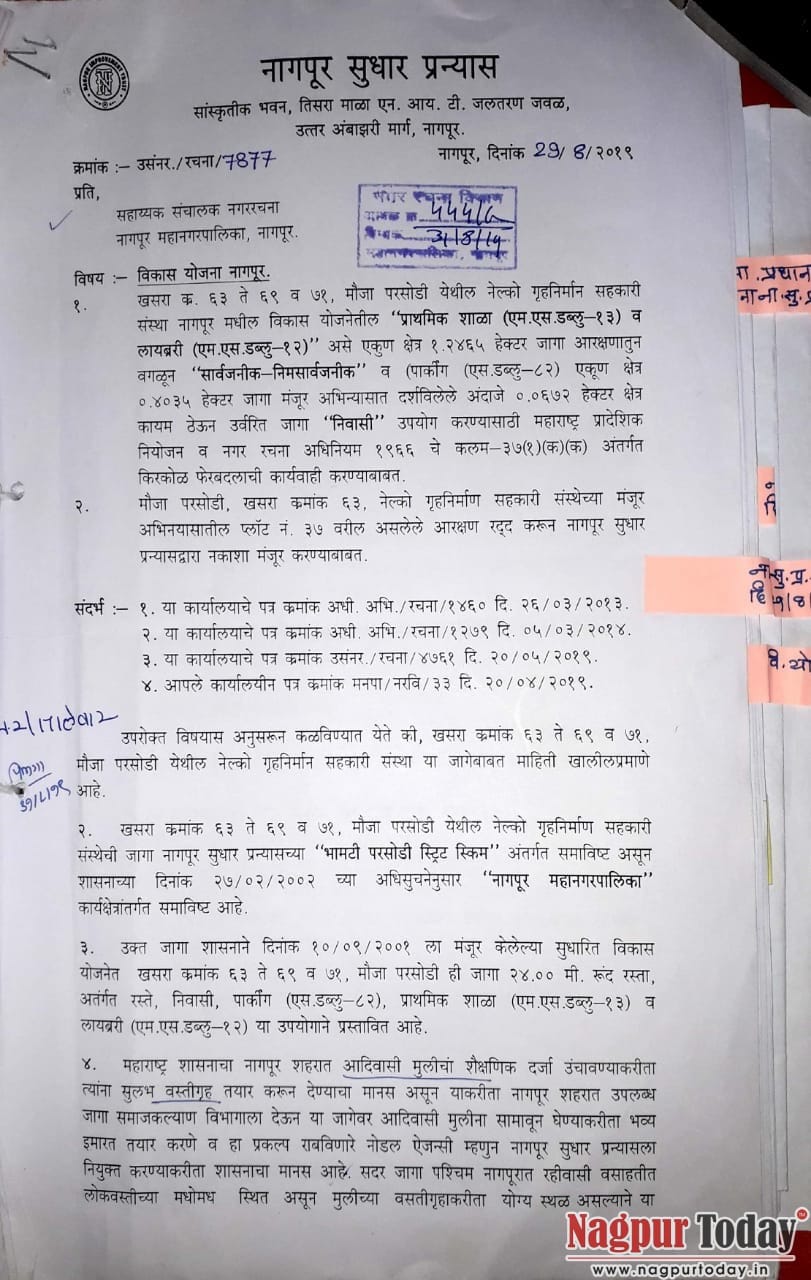 नागपूर सुधार प्रन्यास
सांस्कृतीक भवन, तिसरा माळा एन. आय. टी. जलतरण जवळ,
उत्तर अंबाझरी मार्ग, नागपूर.
क्रमांक :– उसंनर./रचना/7877
नागपूर, दिनांक 29/8/२०१९
प्रति,
सहाय्यक संचालक नगररचना
नागपूर महानगरपालिका, नागपूर.
विषय :– विकास योजना नागपूर.
१. खसरा क. ६३ ते ६९ व ७१, मौजा परसोडी येथील नेल्को गृहनिर्मान सहकारी
संस्था नागपूर मधील विकास योजनेतील “प्राथमिक शाळा (एम.एस.डब्लु–१३) व
लायब्ररी (एम.एस.डब्लु–१२)” असे एकुण क्षेत्र १.२४६५ हेक्टर जागा आरक्षणातुन
वगळून “सार्वजनीक–निमसार्वजनीक” व (पार्कींग (एस.डब्लु–८२) एकूण क्षेत्र
०.४०३५ हेक्टर जागा मंजूर अभिन्यासात दर्शविलेले अंदाजे ०.०६७२ हेक्टर क्षेत्र
कायम ठेऊन उर्वरित जागा “निवासी” उपयोग करण्यासाठी महाराष्ट्र प्रादेशिक
नियोजन व नगर रचना अधिनियम १९६६ चे कलम–३७(१)(क)(क) अंतर्गत
किरकोळ फेरबदलाची कार्यवाही करण्याबाबत.
२. मौजा परसोडी, खसरा कमांक ६३, नेल्को गृहनिर्माण सहकारी संस्थेच्या मंजूर
अभिनयासातील प्लॉट नं. ३७ वरील असलेले आरक्षण रद्द करून नागपूर सुधार
प्रन्यासद्वारा नकाशा मंजूर करण्याबाबत.
संदर्भ :– १. या कार्यालयाचे पत्र कमांक अधी. अभि./रचना/१४६० दि. २६/०३/२०१३.
२. या कार्यालयाचे पत्र कमांक अधी. अभि./रचना/१२७९ दि. ०५/०३/२०१४.
३. या कार्यालयाचे पत्र कमांक उसंनर./रचना/४७६१ दि. २०/०५/२०१९.
४. आपले कार्यालयीन पत्र कमांक मनपा/नरवि/३३ दि. २०/०४/२०१९.
उपरोक्त विषयास अनुसरून कळविण्यात येते की, खसरा कमांक ६३ ते ६९ व ७१,
मौजा परसोडी येथील नेल्को गृहनिर्मान सहकारी संस्था या जागेबाबत माहिती खालीलप्रमाणे
आहे.
२. खसरा कमांक ६३ ते ६९ व ७१, मौजा परसोडी येथील नेल्को गृहनिर्माण सहकारी
संस्थेची जागा नागपूर सुधार प्रन्यासच्या “भामटी परसोडी स्ट्रिट स्किम” अंतर्गत समाविष्ट असून
शासनाच्या दिनांक २७/०२/२००२ च्या अधिसुचनेनुसार “नागपूर महानगरपालिका”
कार्यक्षेत्रांतर्गत समाविष्ट आहे.
३. उक्त जागा शासनाने दिनांक १०/०९/२००१ ला मंजूर केलेल्या सुधारित विकास
योजनेत खसरा कमांक ६३ ते ६९ व ७१, मौजा परसोडी ही जागा २४.०० मी. रूंद रस्ता,
अतंर्गत रस्ते, निवासी, पार्कींग (एस.डब्लु–८२), प्राथमिक शाळा (एम.एस.डब्लु–१३) व
लायब्ररी (एम.एस.डब्लु–१२) या उपयोगाने प्रस्तावित आहे.
४. महाराष्ट्र शासनाचा नागपूर शहरात आदिवासी मुलीचां शैक्षणिक दर्जा उंचावण्याकरीता
त्यांना सुलभ वस्तीगृह तयार करून देण्याचा मानस असून याकरीता नागपूर शहरात उपलब्ध
जागा समाजकल्याण विभागाला देऊन या जागेवर आदिवासी मुलीना सामावून घेण्याकरीता भव्य
इमारत तयार करणे व हा प्रकल्प राबविणारे नोडल ऐजन्सी म्हणुन नागपूर सुधार प्रन्यासला
नियुक्त करण्याकरीता शासनाचा मानस आहे. सदर जागा पश्चिम नागपूरात रहीवासी वसाहतीत
लोकवस्तीच्या मधोमध स्थित असून मुलीच्या वसतीगृहाकरीता योग्य स्थळ असल्याने या
Nagpur Today
www.nagpurtoday.in